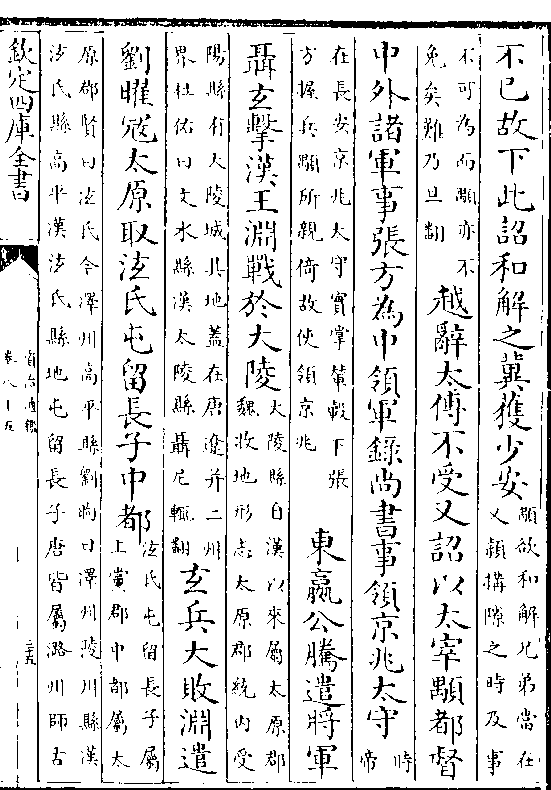 不已故下此詔和解之冀獲少安
顒欲和解兄弟當在
又類構隙之時及事
不可為而顒亦不
免矣難乃旦翻
越辭太傅不受又詔以太宰顒都督
中外諸軍事張方為中領軍錄尚書事領京兆太守
時
帝
在長安京兆太守實掌輦轂下張
方握兵顒所親倚故使領京兆
東嬴公騰遣將軍
聶玄擊漢王淵戰於大陵
大陵縣自漢以來屬太原郡
魏收地形志太原郡統内受
陽縣有大陵城其地蓋在唐遼并二州
界杜佑曰文水縣漢大陵縣聶尼輒翻
玄兵大敗淵遣
劉曜冦太原取泫氏屯留長子中都
泫氏屯留長子屬
上黨郡中都屬太
原郡賢曰泫氏今澤州高平縣劉昫曰澤州陵川縣漢
泫氏縣高平漢泫氏縣地屯留長子唐皆屬潞州師古
欽定四庫全書
資治通鑑
卷八十五